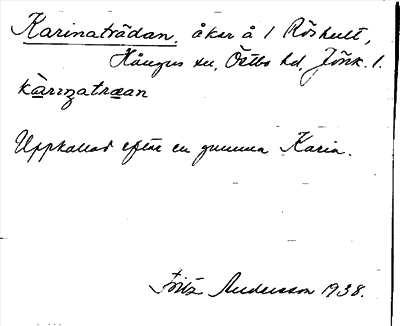 Karinaträdan, åker å 1 Röshult,
Hångers sn, Östbo hd, Jönk. l.
kàrinatræan
Uppkallad efter en gumma Karin.
Fritz Andersson 1938.